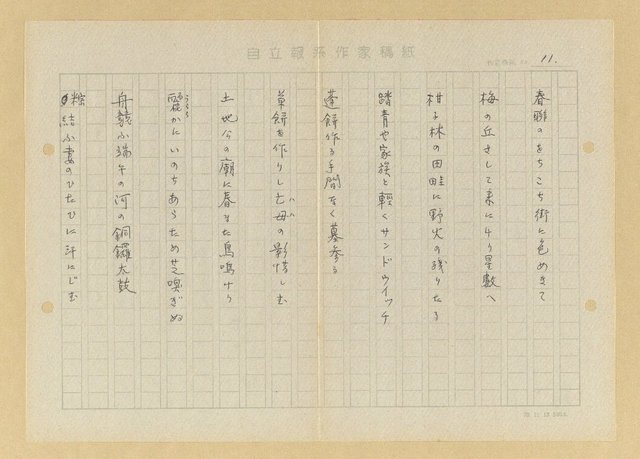 自立報系作家稿紙
11.
春聯のをちこち街に色めきて
梅の丘さして来に4り星數へ
柑子林の田畦に野火の残りたる
踏青や家族と輕くサンドウイッチ
蓬餅作る手間なく墓参る
草餅を作りし亡母の影惜しむ
はは
土地公の廟に春また鳥鳴けり
麗かにいのちあらため芝嗅ぎぬ
うらら
舟競ふ端午の河の銅鑼太鼓
粽結ふ妻のひたひに汗にじむ